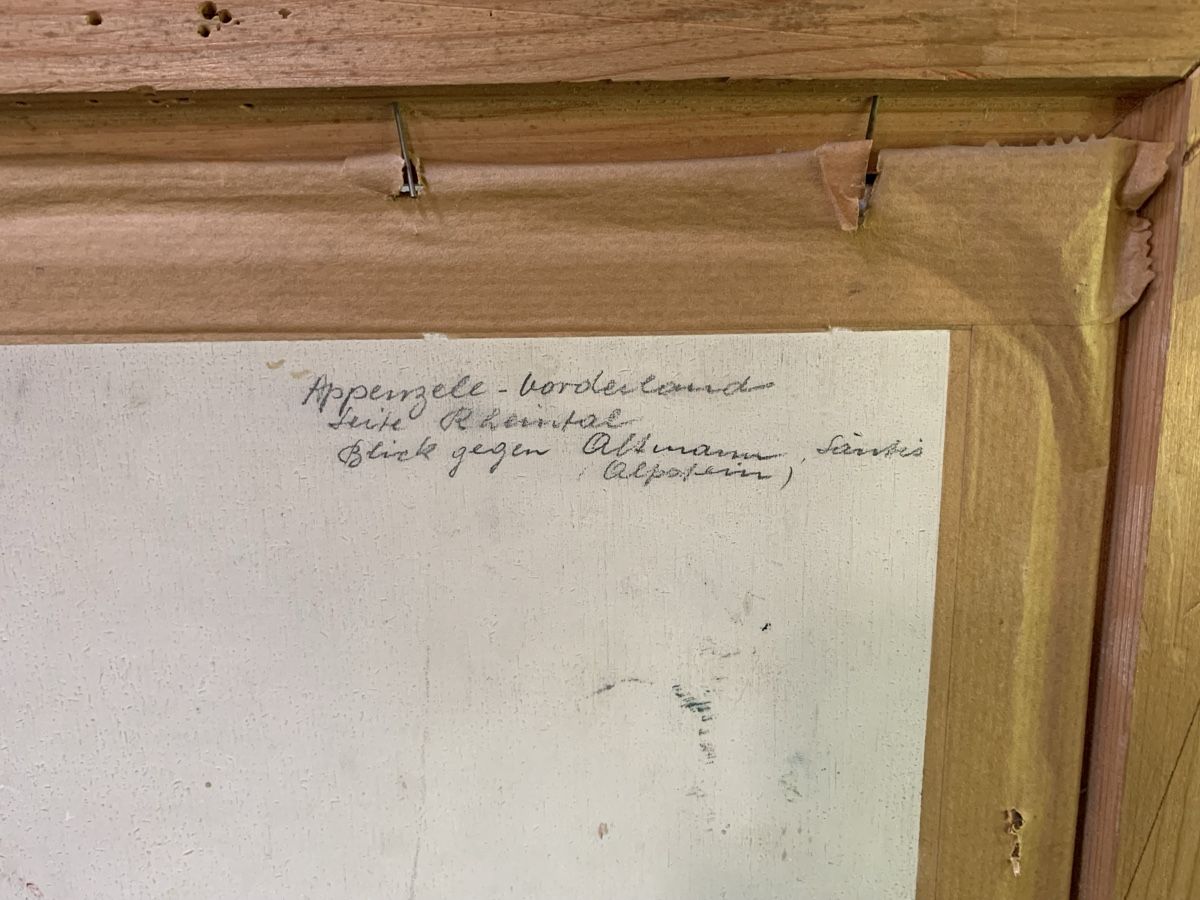 Appenzell - Vorderland
Seite Rheintal
Blick gegen Altmann, Säntis
(Alpstein)